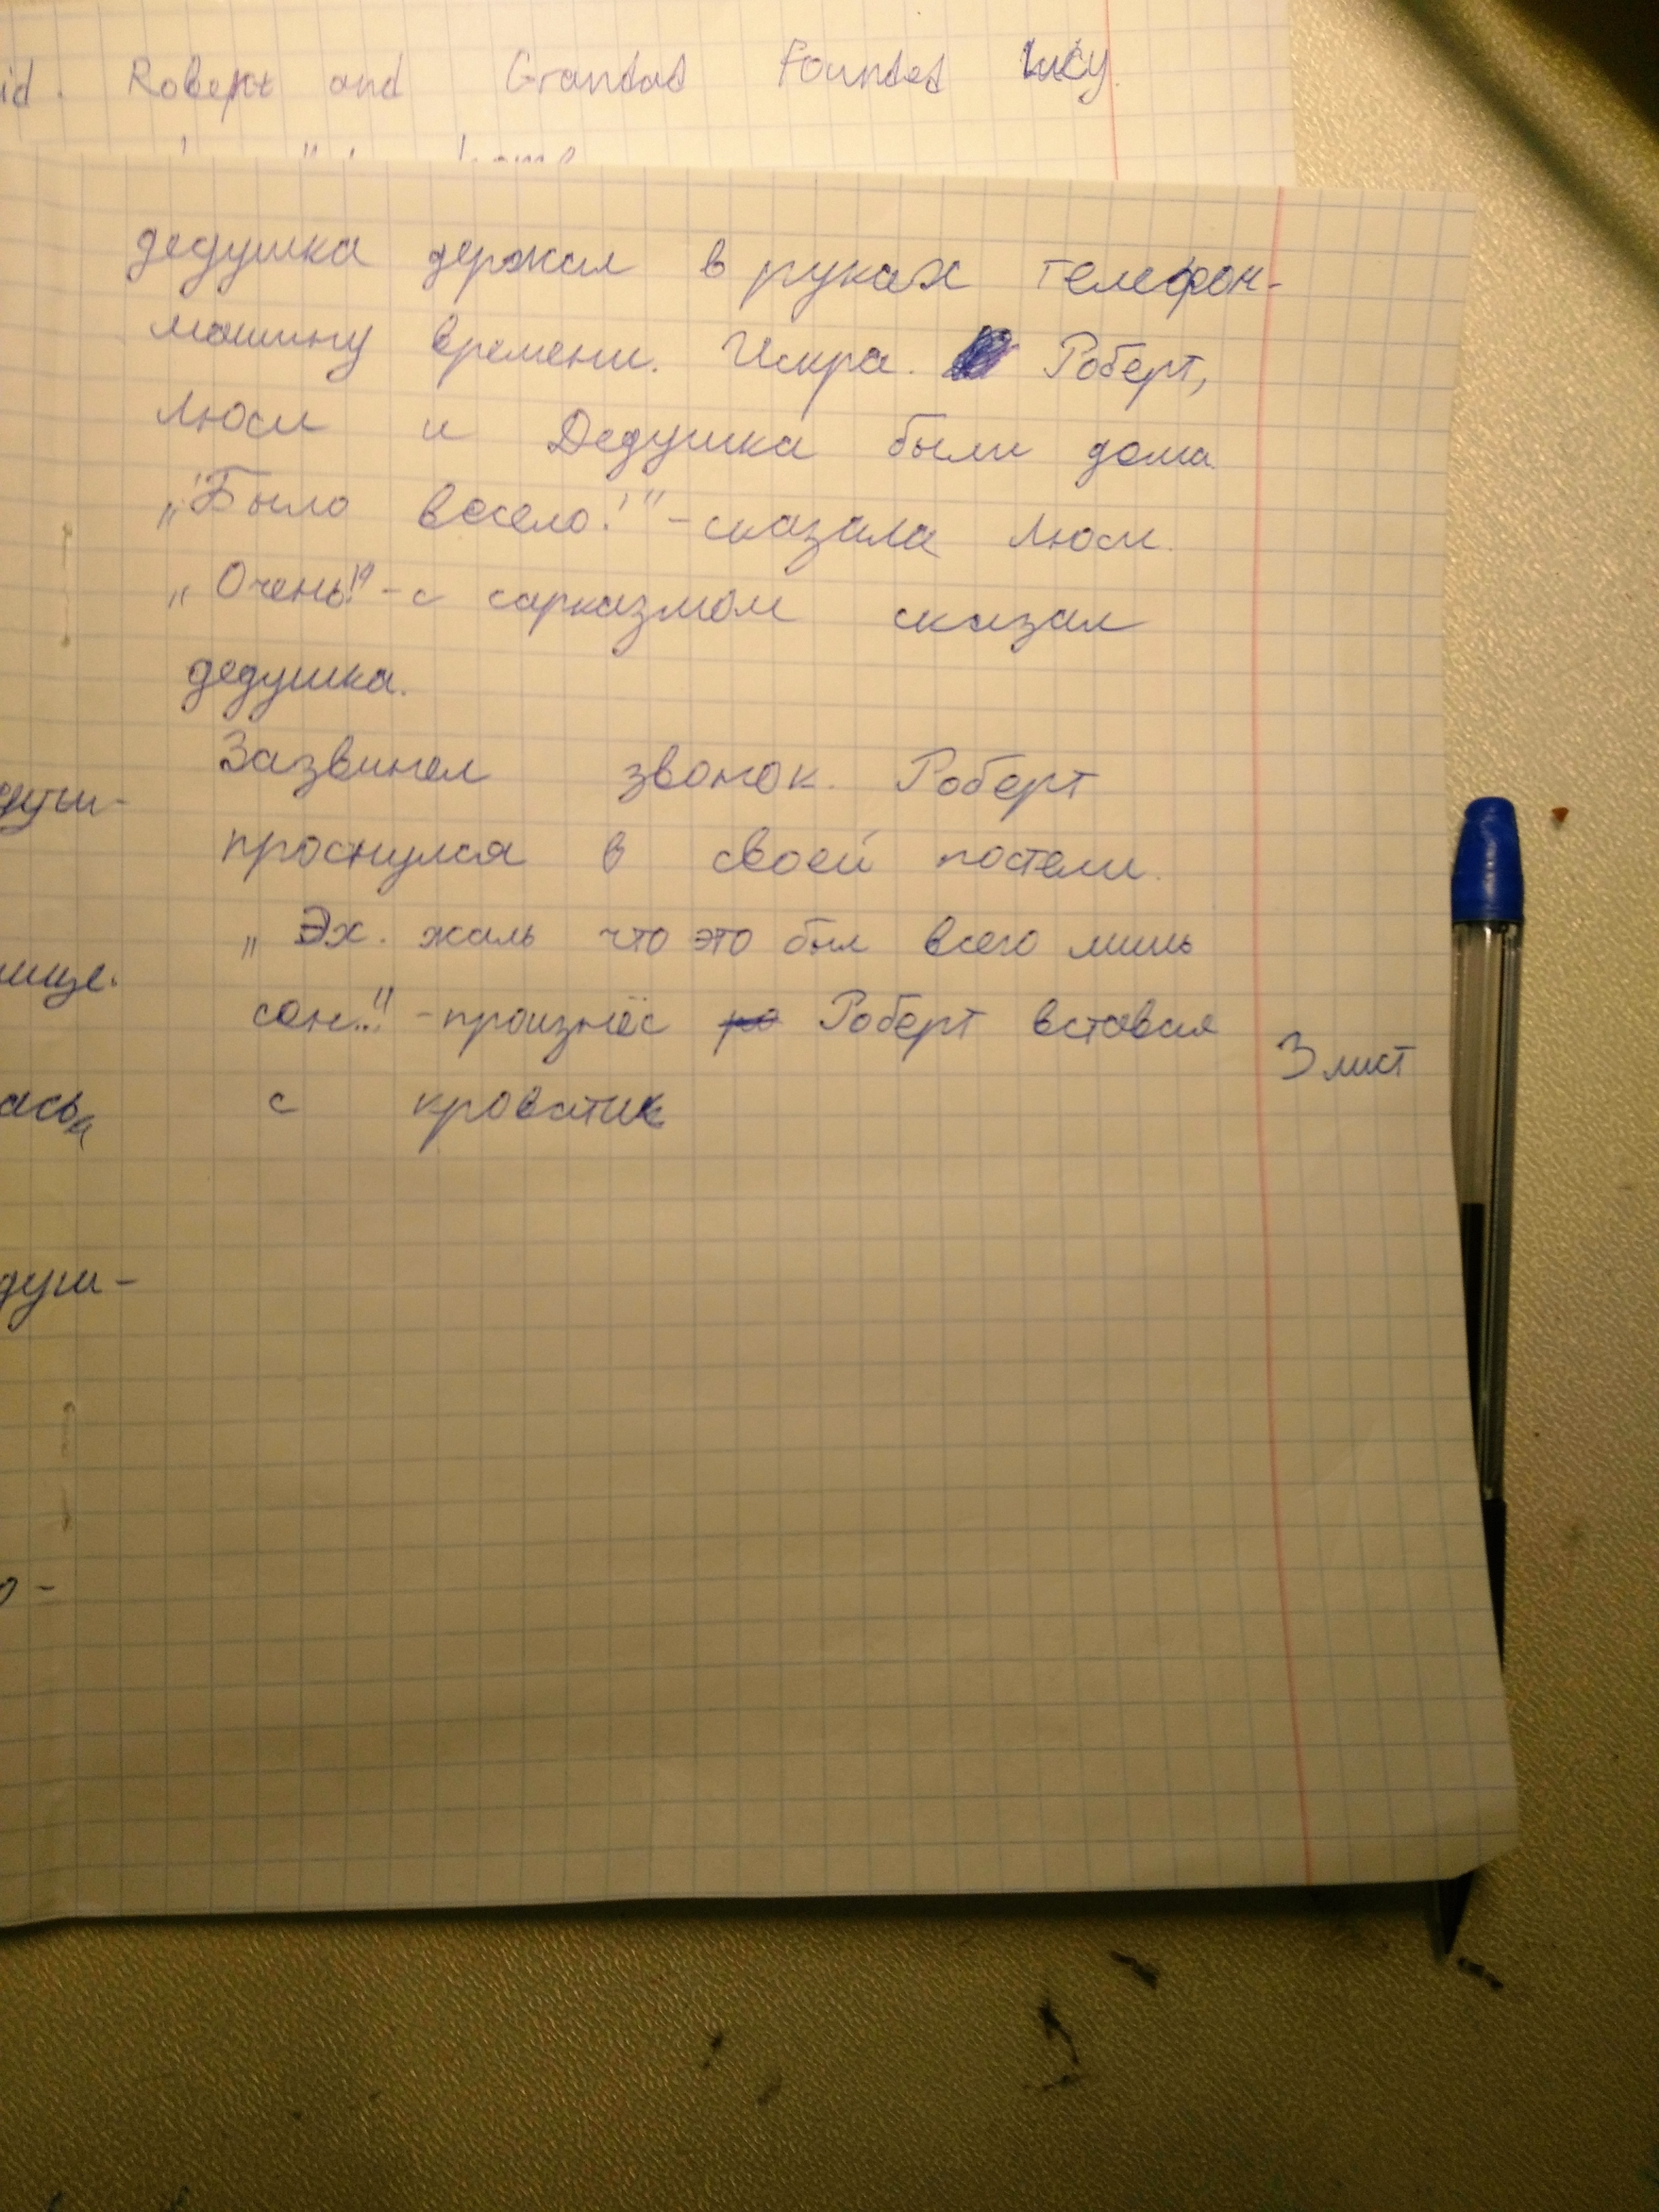 id. Robert and Grandad Founded Lucy.
дедушка держал в руках телефон-
машину времени. Искра. Роберт,
Люси и Дедушка были дома.
„Было весело!" - сказала Люси.
„Очень!" - с сарказмом сказал
дедушка.
Зазвинел звонок. Роберт
проснулся в своей постели.
„Эх. жаль что это был всего лишь
сон..." - произнёс Роберт вставая
с кровати
3 лист